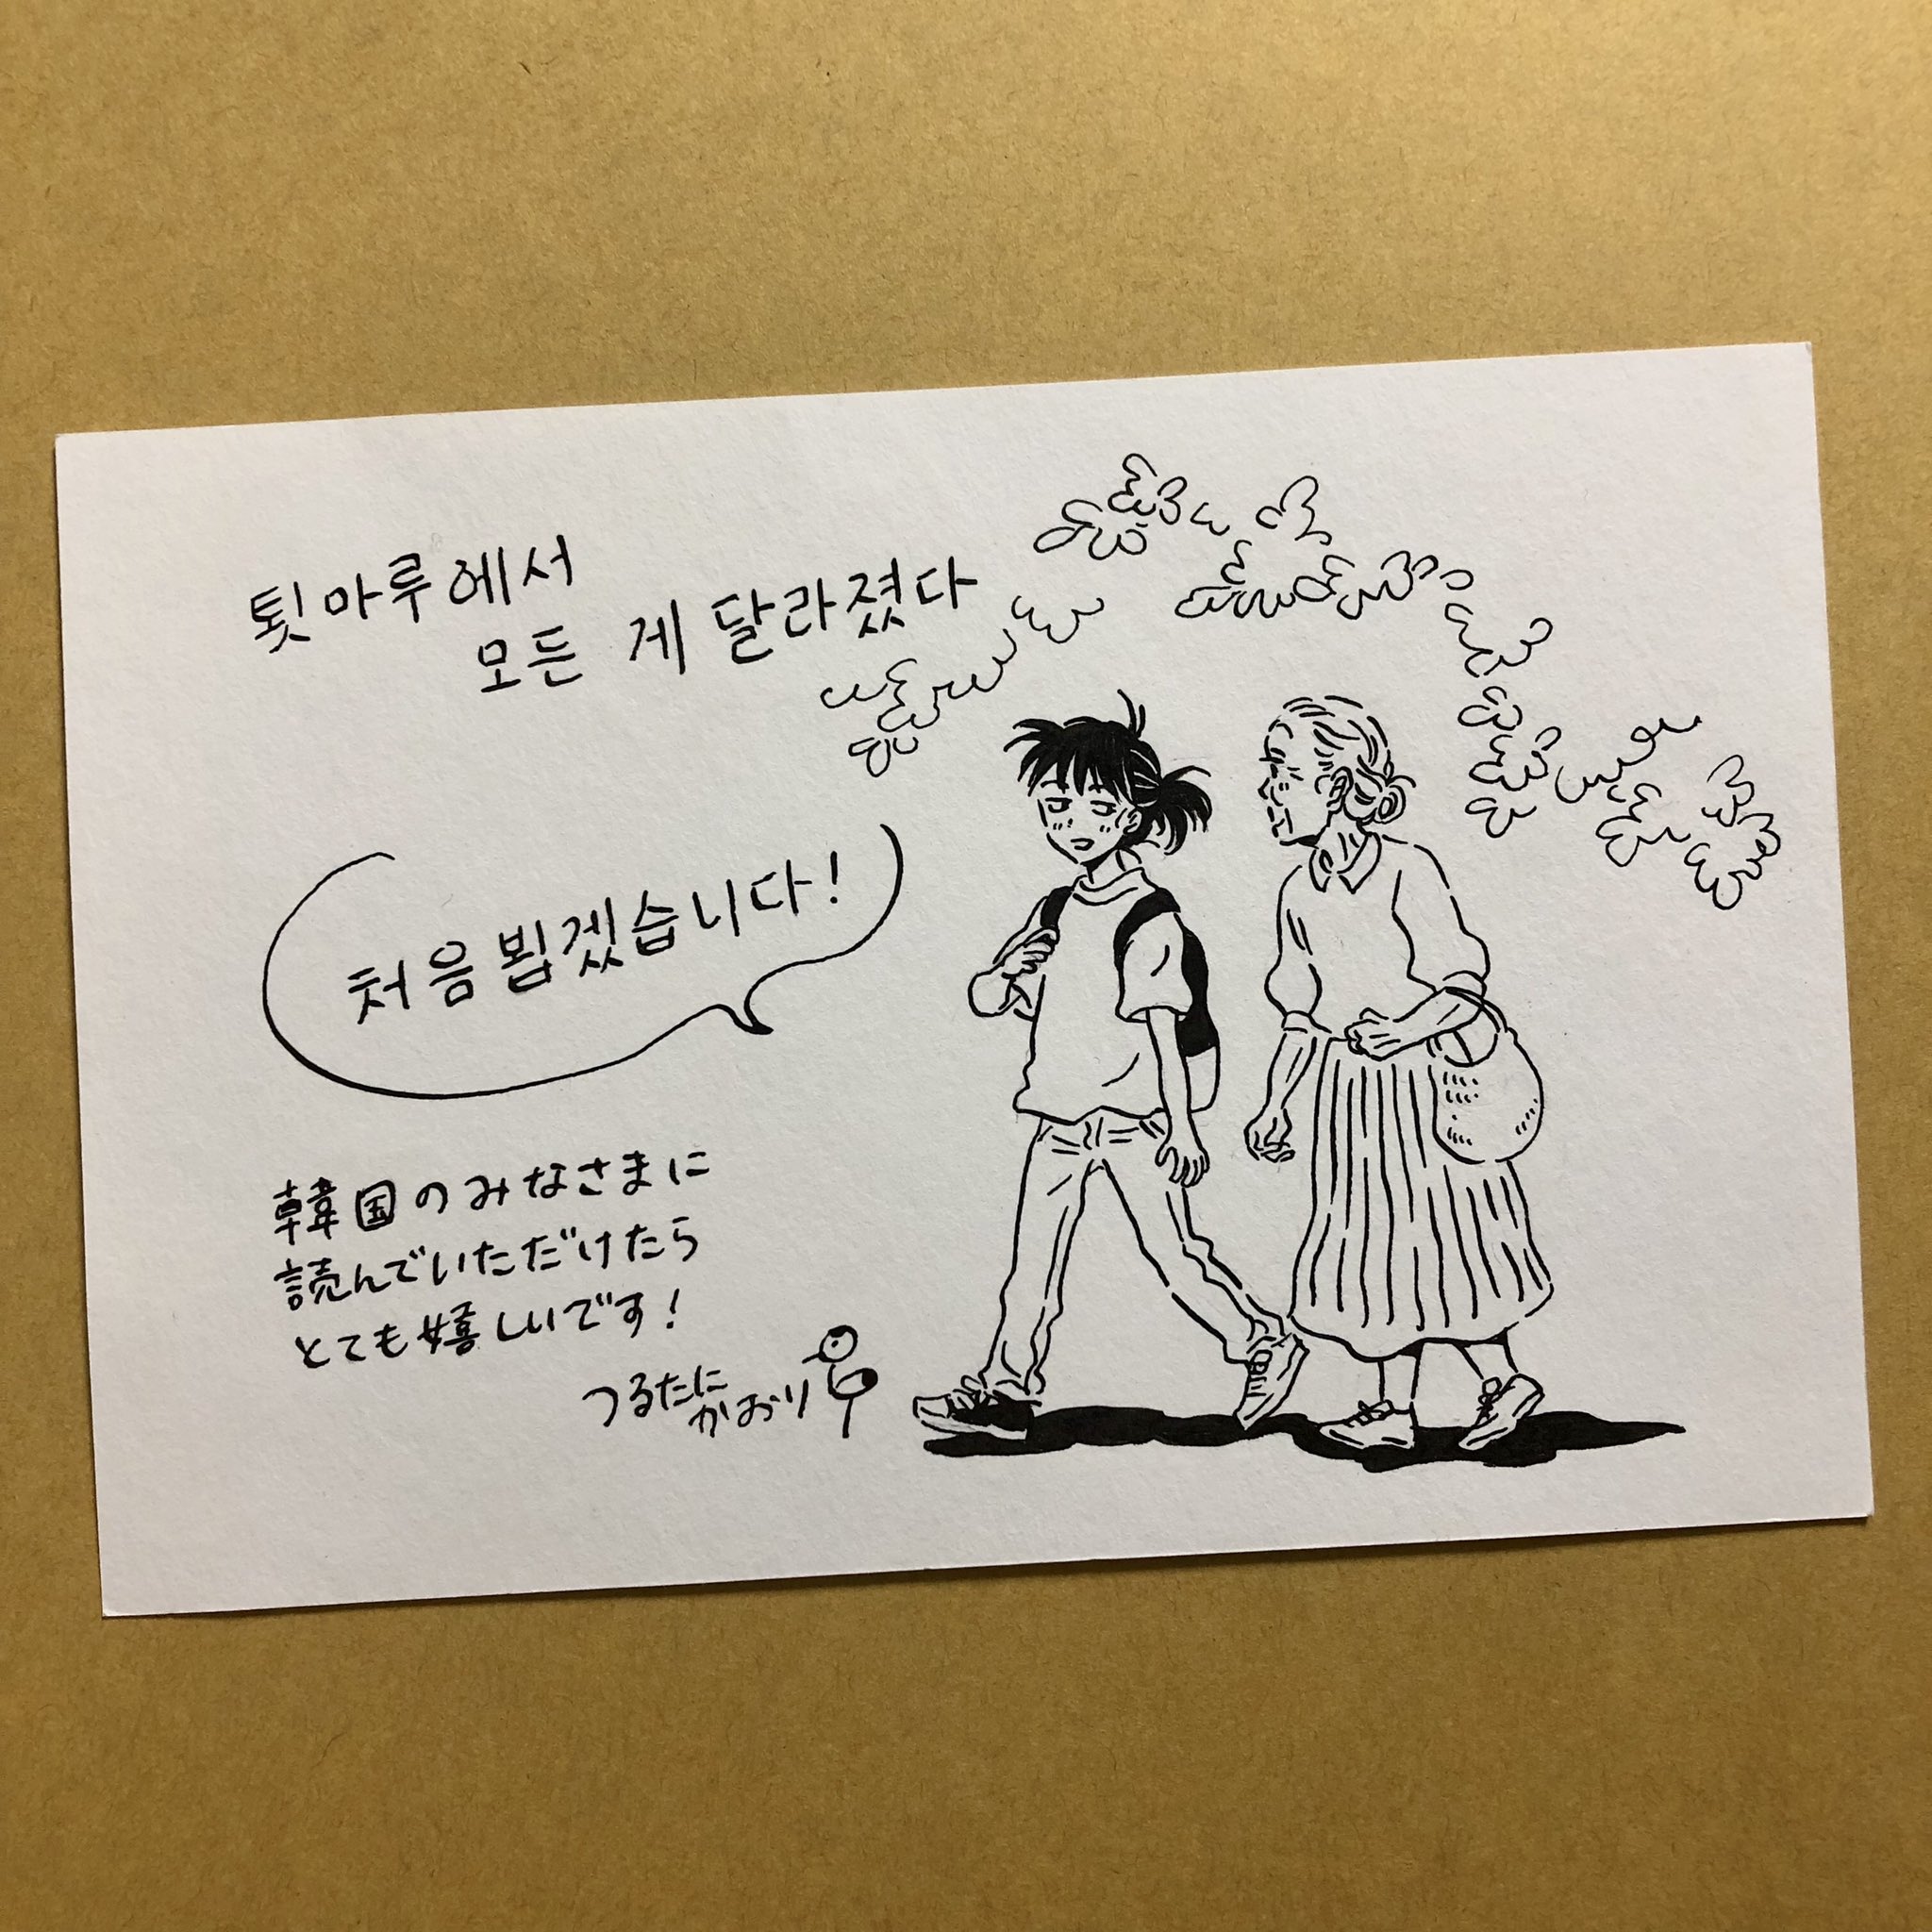 툇마루에서
모든 게 달라졌다
처음 뵙겠습니다!
韓国のみなさまに
読んでいただけたら
とても嬉しいです!
つるたに
かおり